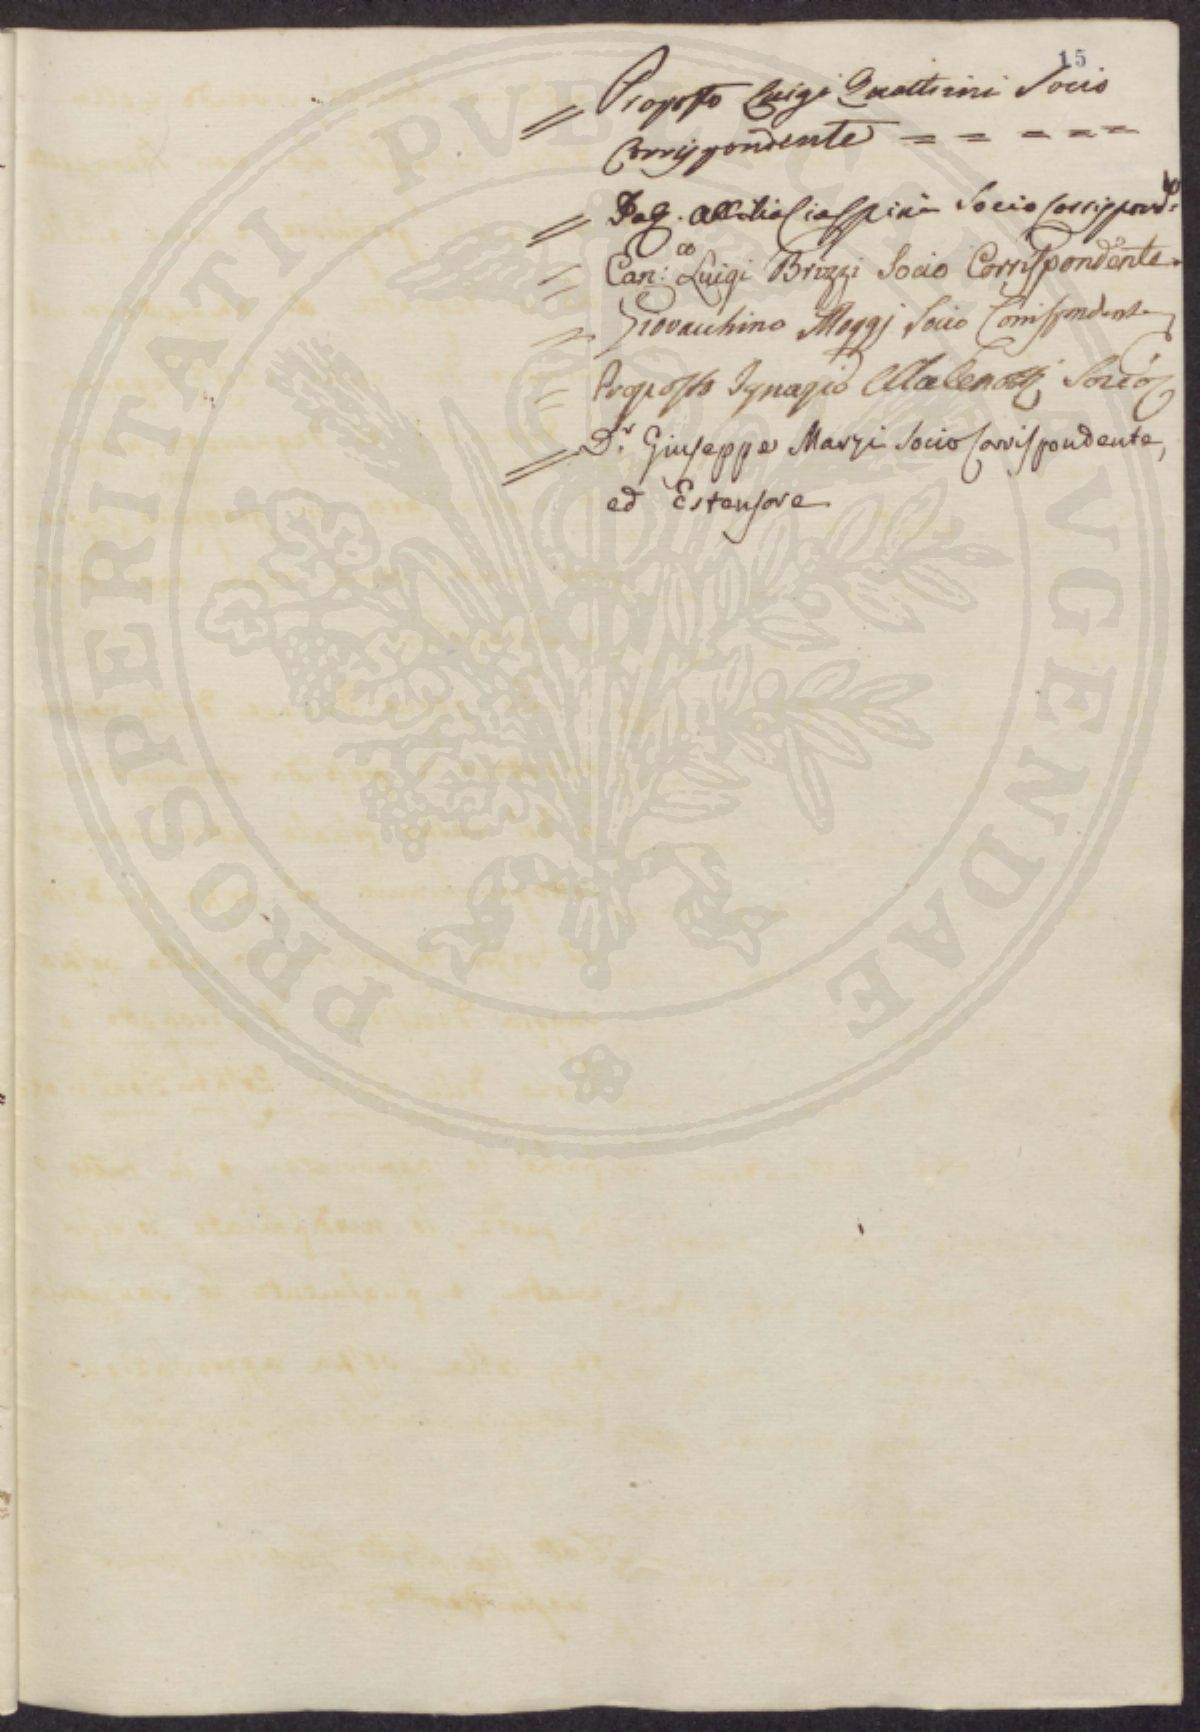 15
= Proposto Luigi Quattrini Socio
Corrispondente = = = = =
= Socio Corrispond:te
= Can:co Luigi Brizzi Socio Corrispondente.
= Giovacchino Maggj Socio Corrispondente
= Proposto Ignazio Malenotti Socio
= D.r Giuseppe Marzi Socio Corrispondente,
ed Estensore
PROSPERITATI PUBLICAE AUGENDAE